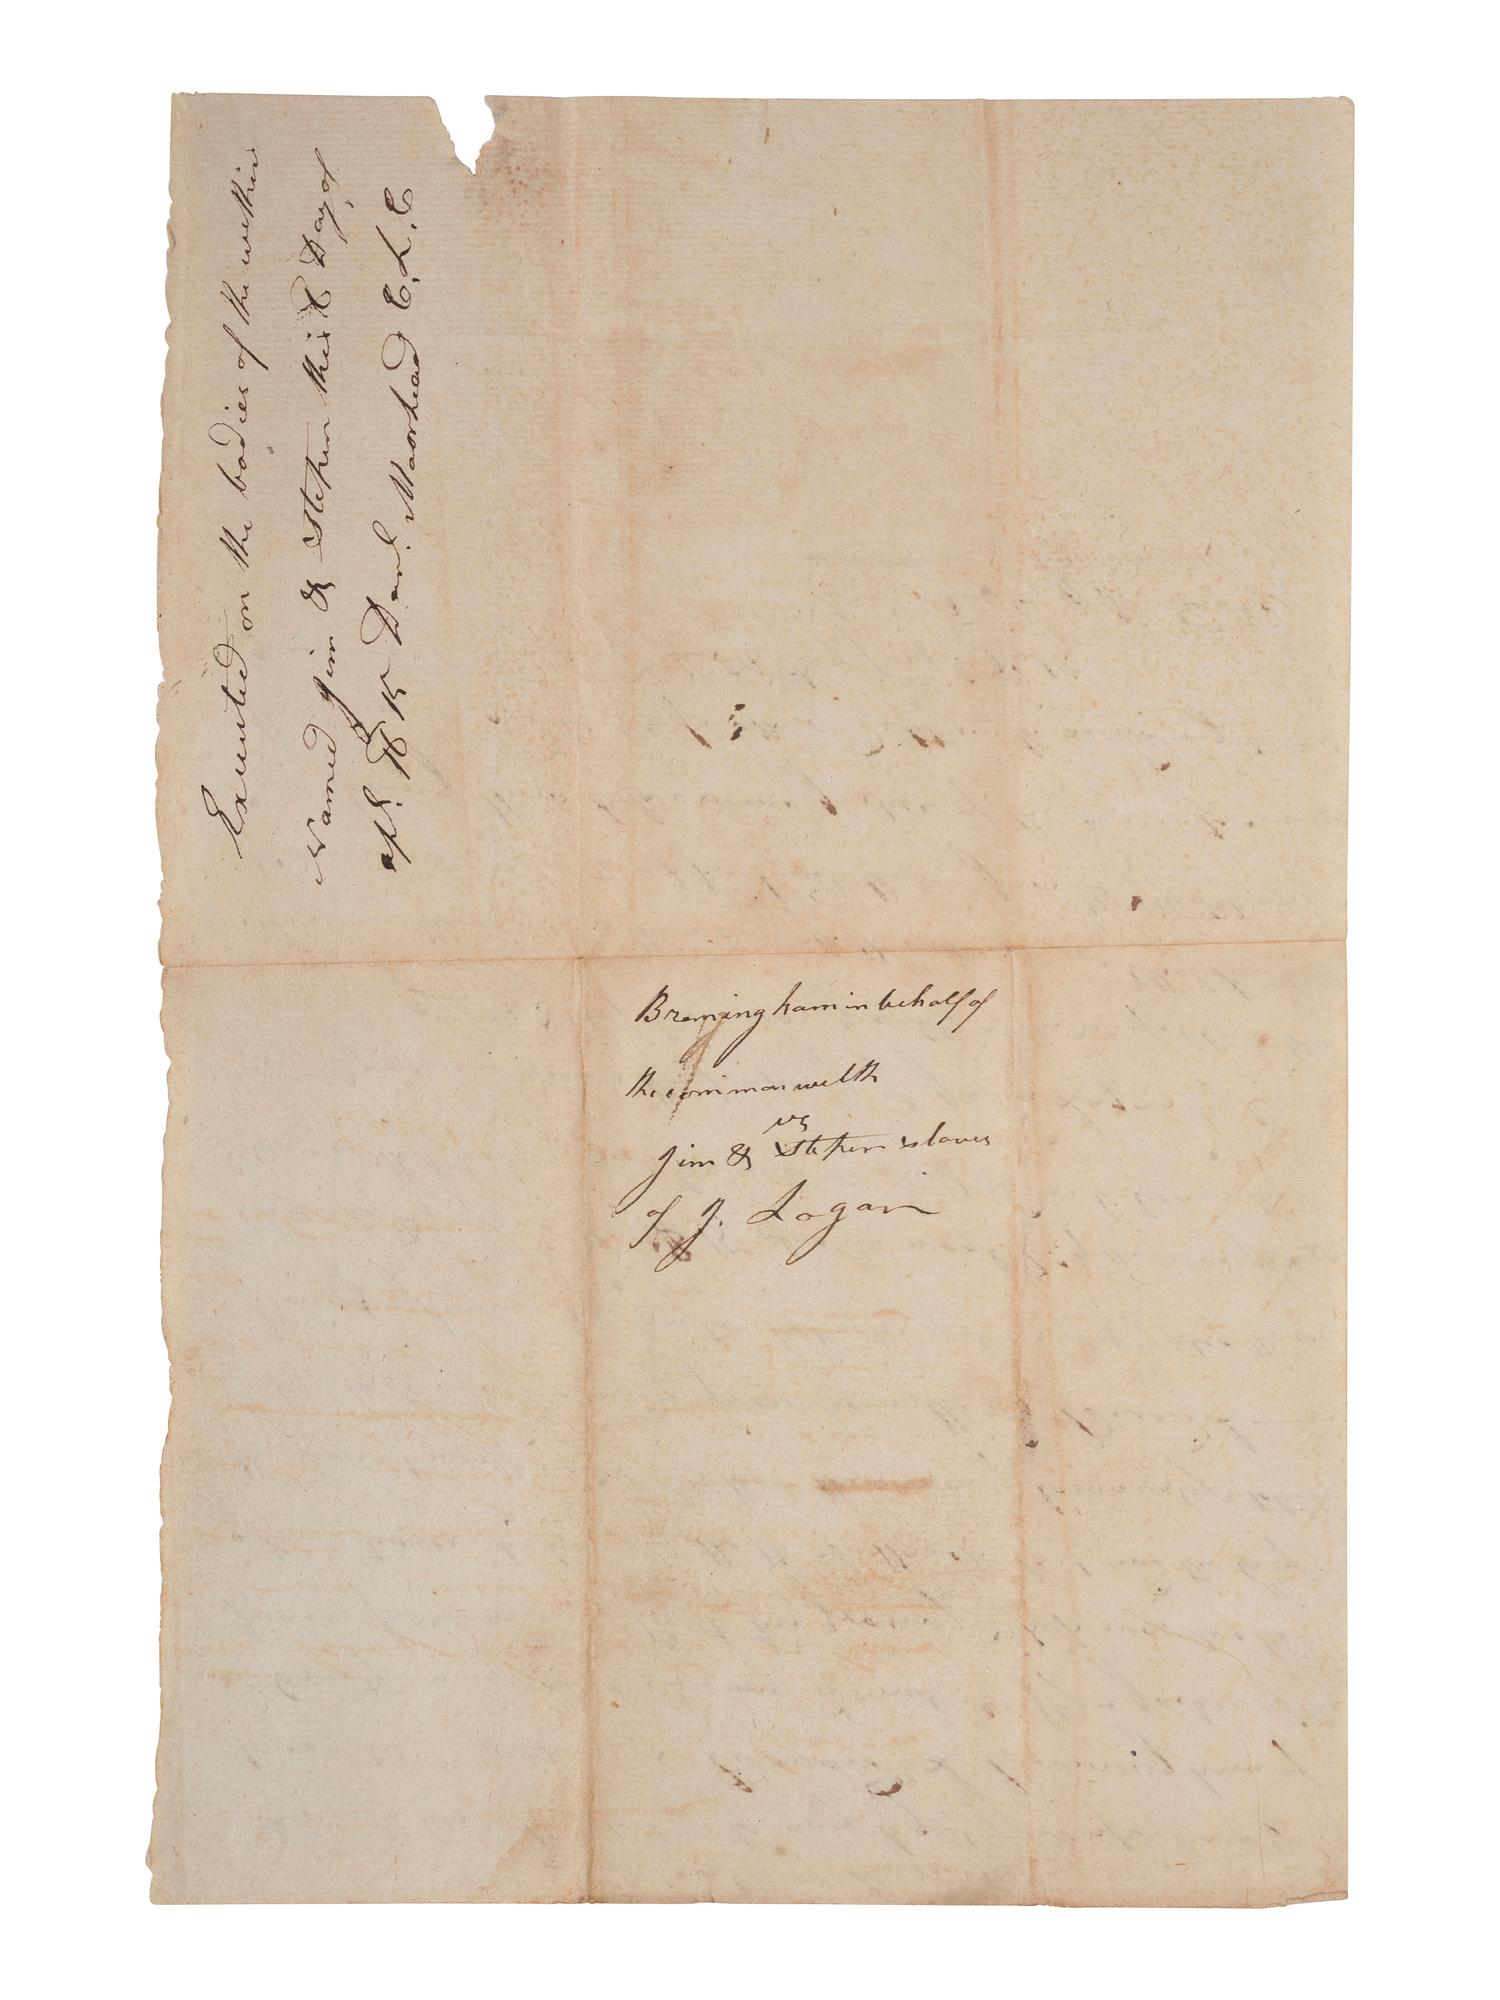 Executed on the bodies of the within
Named Jim & Stephen this Day of
apl. Danl. Moorhead C.L.C
Bremingham in behalf of
the common welth
vs
Jim & Stephen slaves
of J. Logan